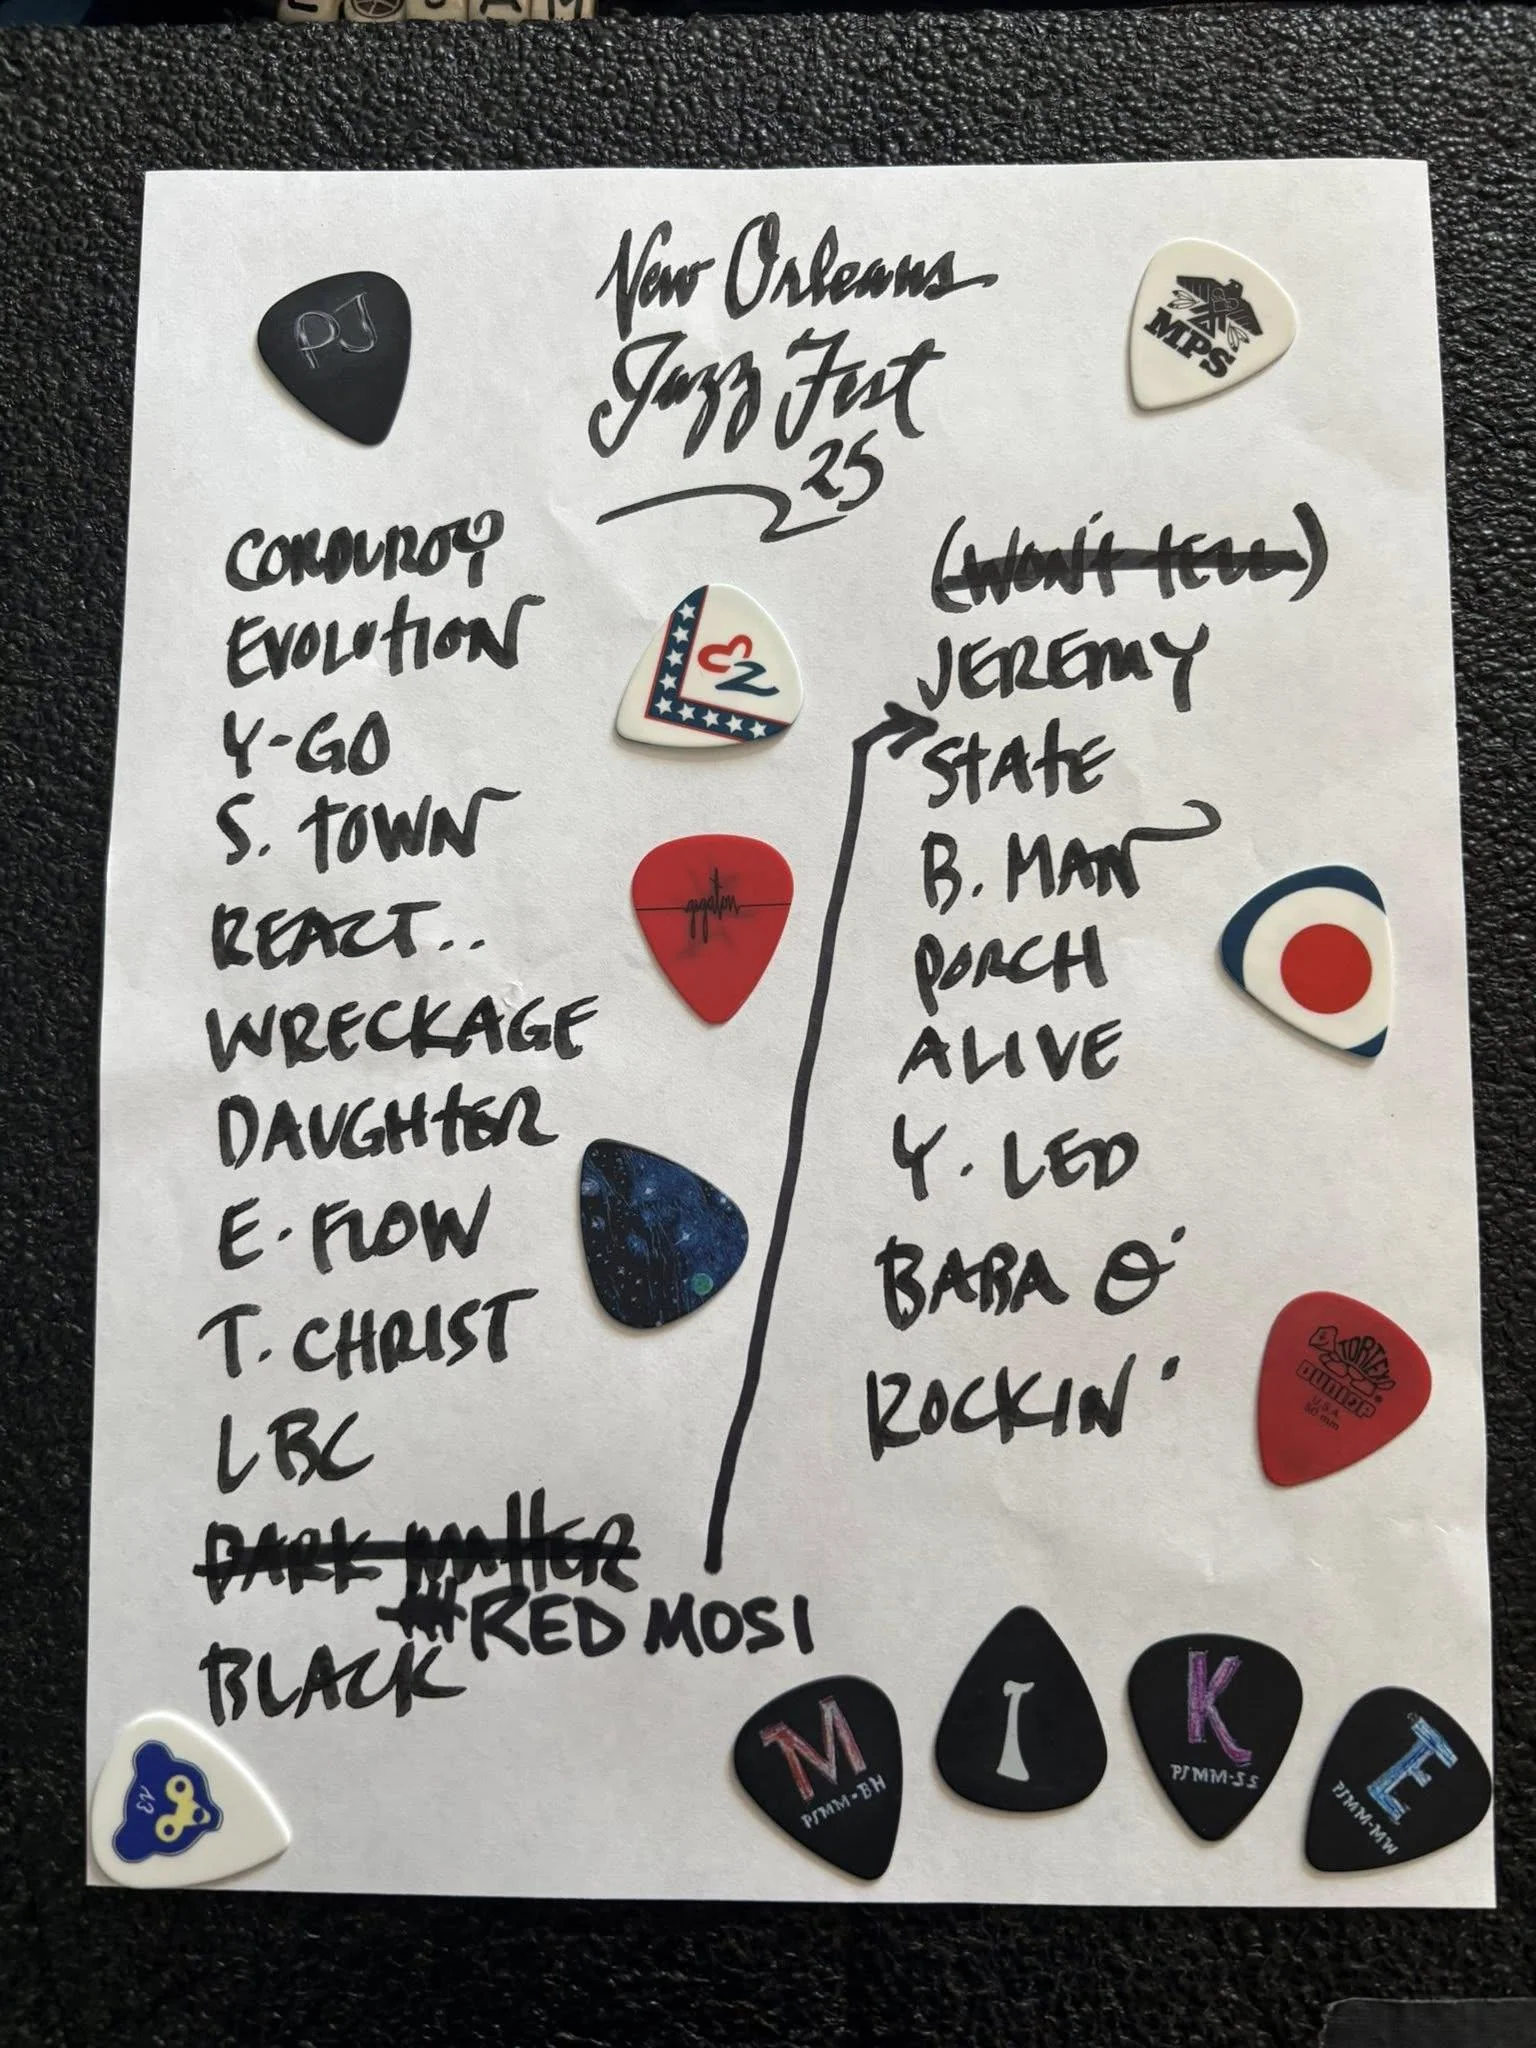 New Orleans
Jazz Fest
25
PJ
MPS
CORDUROY
EVOLUTION
Y-GO
S. TOWN
REACT..
WRECKAGE
DAUGHTER
E. FLOW
T. CHRIST
LBC
DARK MATTER
#RED MOSI
BLACK
(WON'T TELL)
JEREMY
STATE
B. MAN
PORCH
ALIVE
Y. LED
BABA O'
ROCKIN'
gigaton
TORTEX
DUNLOP
U.S.A
.50 mm
13
M
PJMM-BH
I
K
PJMM-SS
E
PJMM-MW